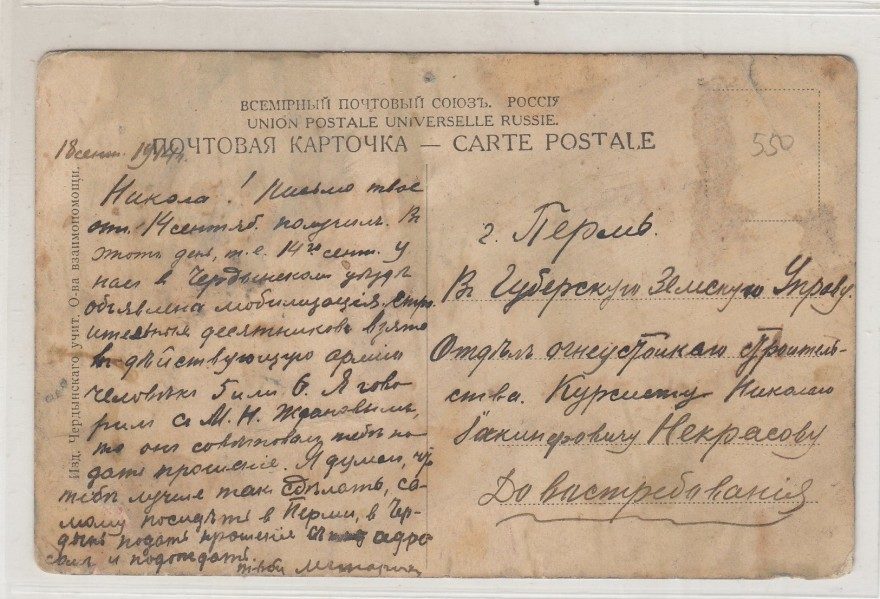 ВСЕМІРНЫЙ ПОЧТОВЫЙ СОЮЗЪ. РОССІЯ
UNION POSTALE UNIVERSELLE RUSSIE.
ПОЧТОВАЯ КАРТОЧКА — CARTE POSTALE
Изд. Чердынскаго учит. О-ва взаимопомощи.
550
18 сент.
Никола! Письмо твое
от 14 сентяб. получилъ. Въ
этотъ день, т.е. 14го сент. у
насъ в Чердынскомъ уѣздѣ
объявлена мобилизація строи
ительныя десятниковъ взято
въ дѣйствующую армію
человѣкъ 5 или 6. Я гово
рилъ съ М. Н. Ждановымъ,
то онъ совѣтовалъ тебѣ по
дать прошеніе. Я думаю, что
тебѣ лучше такъ сдѣлать, са-
мому посидѣть в Перми, в Чер-
дынь подать прошеніе
и подождать.
твой
г. Пермь.
Въ Губерскую Земскую Управу.
Отдѣлъ огнеустойкаго строитель-
ства. Курсисту Николаю
Іакинфовичу Некрасову
До востребованія